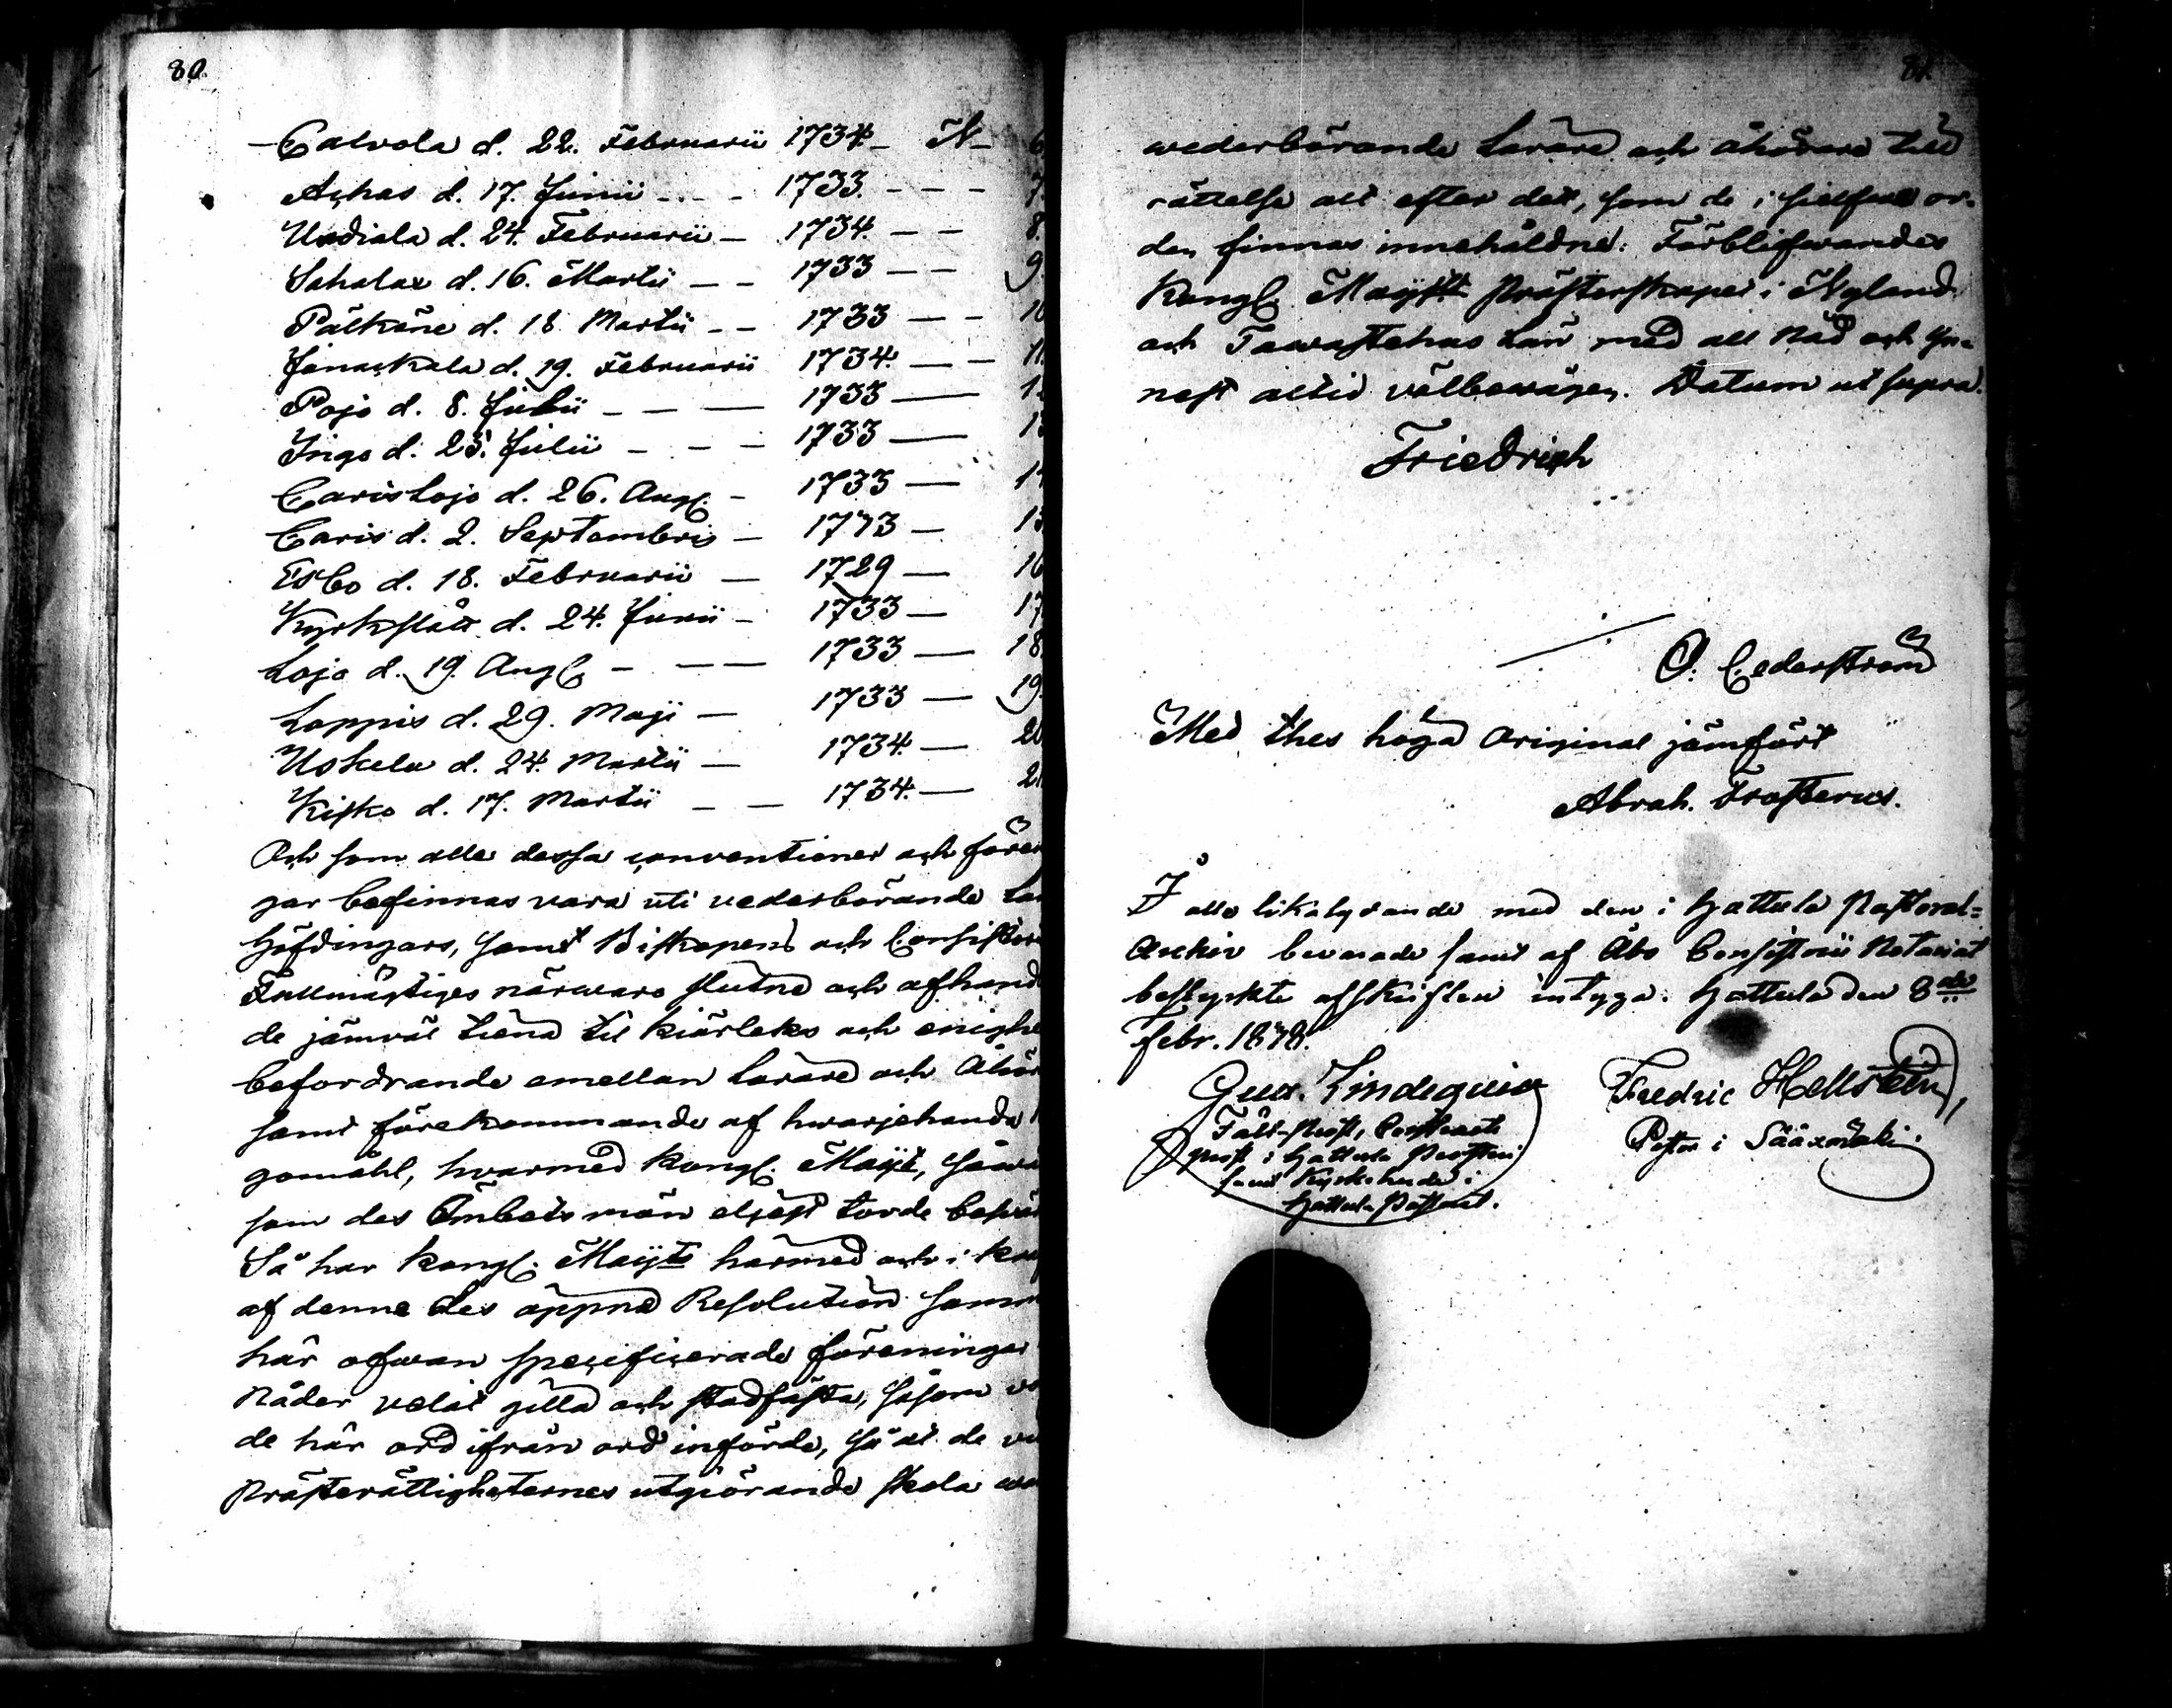 80.
Calvola d. 22. Februarii 1734 - N - 6
Achas d. 17. Junii - - - 1733. - - - 7.
Urdiala d. 24. Februarii - 1734. - - 8.
Sahalax d. 16. Martii - - 1733 - - 9.
Pälkäne d. 18 Martii - - 1733 - - 10
Janackala d. 19. Februarii 1734. - - 11.
Pojo d. 8. Julii - - - 1733 - 12
Ingo d. 25. Julii - - - 1733 - 13
CarisLojo d. 26. Aug. - 1733 - 14
Caris d. 2. Septembris - 1773 - 15
Esbo d. 18. Februarii - 1729 - 16
Kyrkslätt d. 24. Junii - 1733 - 17
Lojo d. 19. Aug - - - 1733 - 18.
Loppis d. 29. Maji - 1733 - 19.
Uskela d. 24. Martii - 1734. - 20
Kisko d. 17. Martii - - 1734. - 21
Och som alla dessa conventioner och fören
gar befinnas vara uti vederbörande La
höfdingars, samt Biskopens och Consistor
Fullmägtiges närwaro slutne och afhand
de jämväl tiena til kiärleks och enighe
befordrande emellan Lärare och Åhör
samt förekommande af hwarjehanda
gomåhl, hvarmed Kongl. Maijt, såwä
som des Ämbetsmän eljest torde beswär
Så har Kongl. Maijt härmed och i kra
af denne des öppne Resolution samm
här ofwan specificerade föreningar
Nåder velat gilla och stadfästa, såsom wo
de här ord ifrån ord införde, så at de wi
Prästerättigheternes utgiörande skola wa
81.
wederbörande Lärare och åhörare till
rättelse alt efter det, som de i sielfwa or-
den finnas innehåldne. Förblifwandes
Kongl. Maijtt Prästerskapet i Nyland
och Tawastehus Län med all Nåd och Gu-
nest altid välbewägen. Datum ut supra.
Friedrich
O. Cederström
Med thes höga Original jämfört
Abrah. Frosterus.
I allo likalydande med den i Hattula Pastoral-
Archiv bevarade samt af Åbo Consistorii Notariat
bestyrkte afskriften intyga. Hattula den 8de
Febr. 1878.
Gust. Lindequist
Fält-Prost, Contracts
prost i Hattula Prosteri
samt Kyrkoherde i
Hattula Pastorat.
Fredric Hellstén,
Pastor i Sääxmäki.